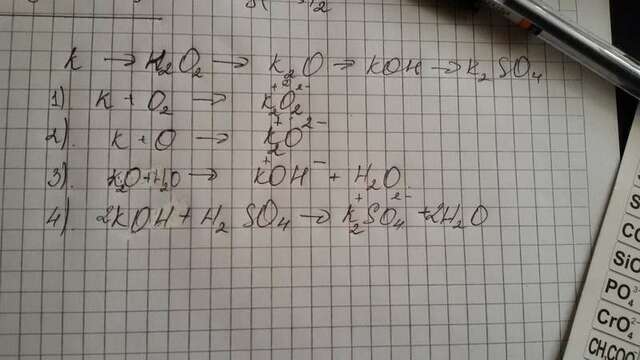 K → H2O2 → K2O → KOH → K2SO4
1) K + O2 → K2+O2 2-
2). K + O → K2+O 2-
3). K2O+H2O → K+OH- + H2O
4). 2KOH + H2SO4 → K2+SO4 2- + 2H2O
S
S
CO
SiO
PO4 3-
CrO4 2-
CH3COO